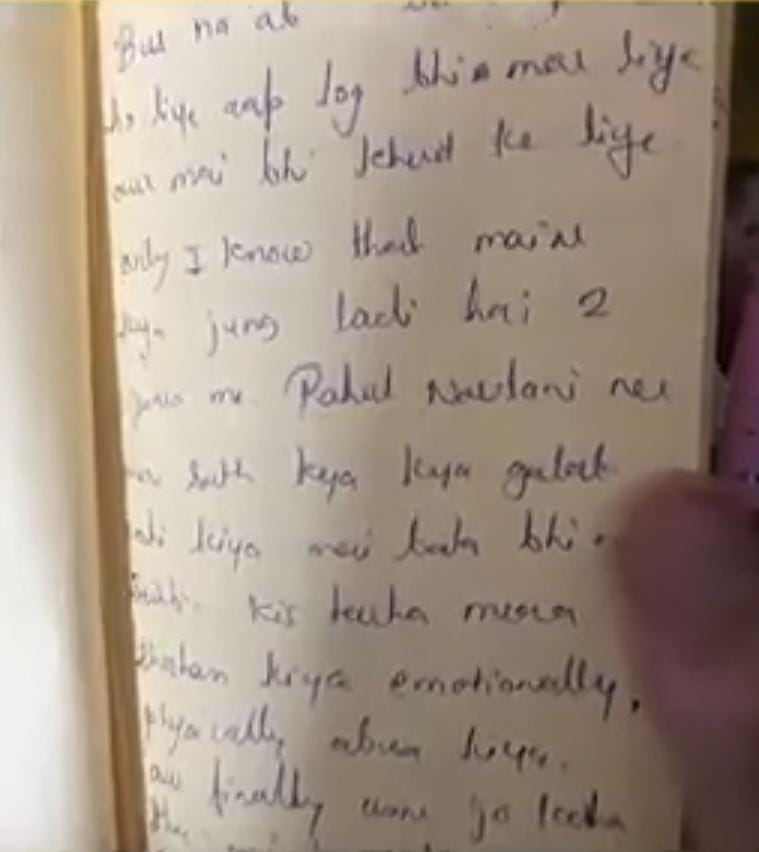 Bus no ab
ke liye aap log bhi mere liye
aur mai bhi khud ke liye
only I know that maine
kya jung ladi hai 2
years me. Rahul Navlani ne
sath kya kya galat
nahi kiya mai bata bhi
kis tarha mera
shoshan kiya emotionally,
physically abuse kiya.
aur finally usne jo kaha
tha